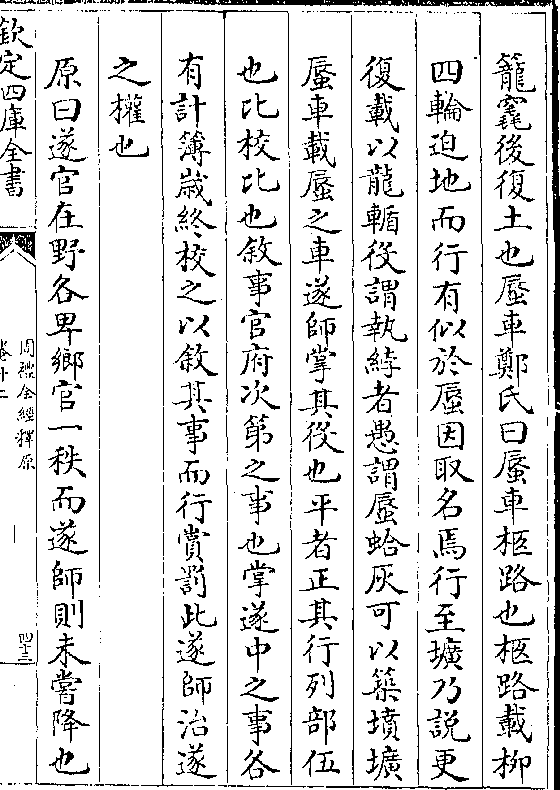 籠窆後復土也蜃車鄭氏曰蜃車柩路也柩路載柳
四輪迫地而行有似於蜃因取名焉行至壙乃說更
復載以龍輴役謂執紼者愚謂蜃蛤灰可以築墳壙
蜃車載蜃之車遂師掌其役也平者正其行列部伍
也比校比也敘事官府次第之事也掌遂中之事各
有計簿歲終校之以敘其事而行賞罰此遂師治遂
之權也
原曰遂官在野各卑鄉官一秩而遂師則未嘗降也
欽定四庫全書
周禮全經釋原
卷十二
四十三